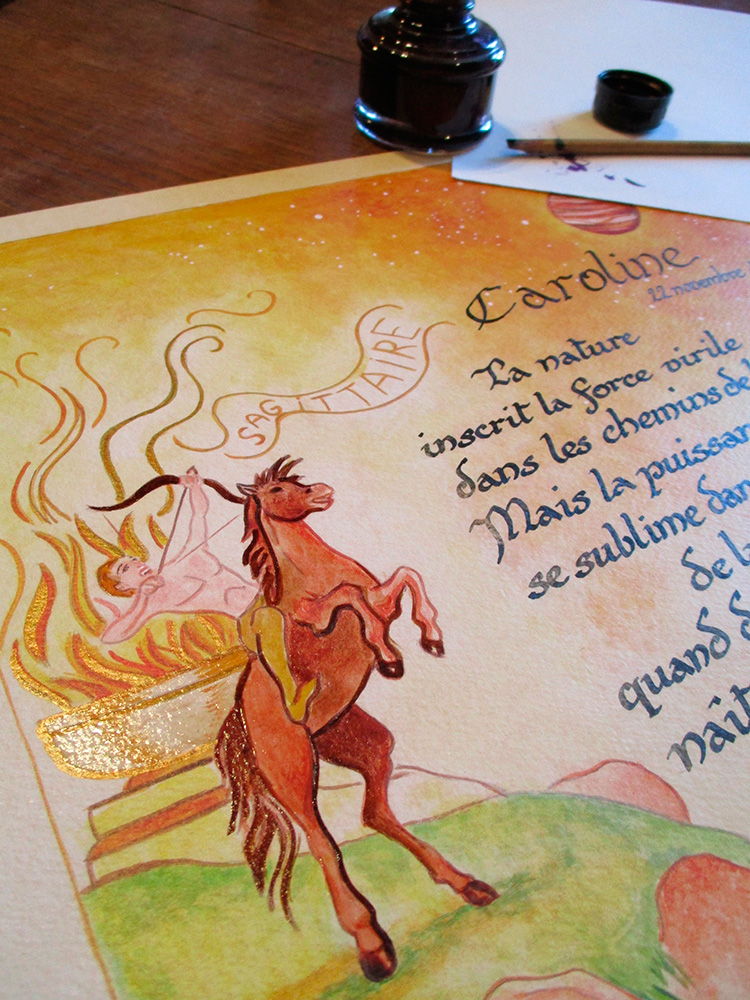 SAGITTAIRE
Caroline
22 novembre
La nature
inscrit la force virile
dans les chemins de
Mais la
se sublime
de
quand
naît